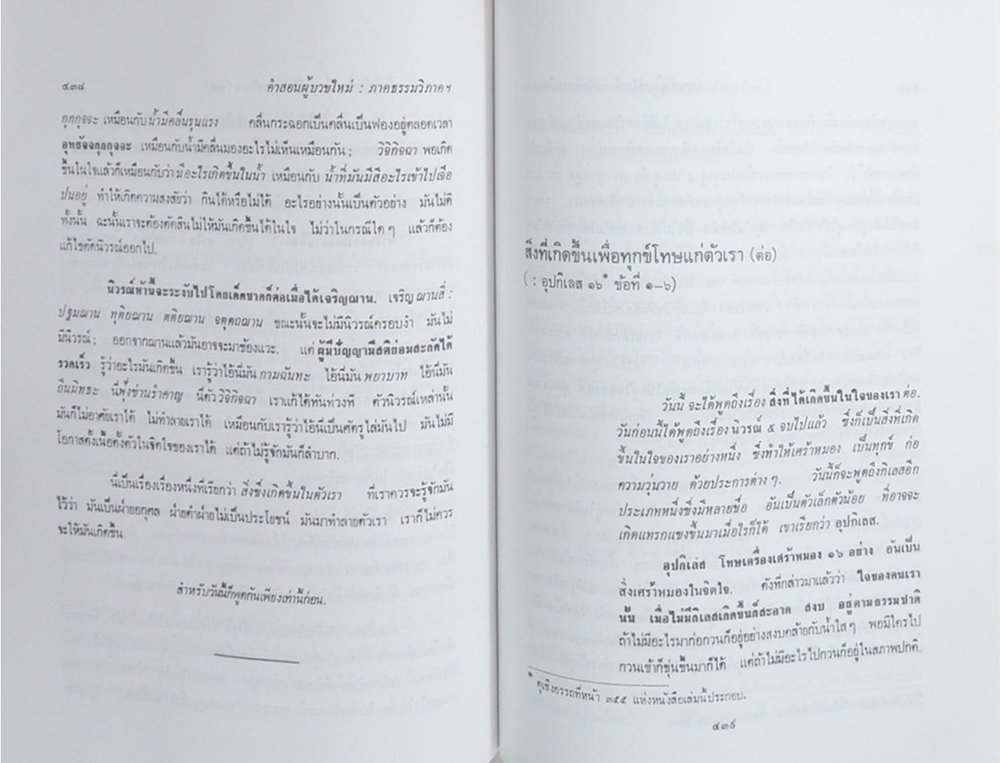 ๔๓๘ คำสอนผู้บวชใหม่ : ภาคธรรมวิภาค ฯ
กุกกุจจะ เหมือนกับน้ำมีคลื่นรุนแรง คลื่นกระฉอกเป็นคลื่นเป็นฟองอยู่ตลอดเวลา
อุทธัจจกุกกุจจะ เหมือนกับน้ำมีคลื่นมองอะไรไม่เห็นเหมือนกัน ; วิจิกิจฉา พอเกิด
ขึ้นในใจแล้วก็เหมือนกับว่า มีอะไรเกิดขึ้นในน้ำ เหมือนกับ น้ำที่มันมีสีอะไรเข้าไปเจือ
ปนอยู่ ทำให้เกิดความสงสัยว่า กินได้หรือไม่ได้ อะไรอย่างนั้นเป็นตัวอย่าง มันไม่ดี
ทั้งนั้น ฉะนั้นเราจะต้องตัดสินไม่ให้มันเกิดขึ้นได้ในใจ ไม่ว่าในกรณีใด ๆ แล้วก็ต้อง
แก้ไขตัดนิวรณ์ออกไป.
นิวรณ์ห้านี้จะระงับไปโดยเด็ดขาดก็ต่อเมื่อได้เจริญฌาน. เจริญ ฌานสี่ :
ปฐมฌาน ทุติยฌาน ตติยฌาน จตุตถฌาน ขณะนั้นจะไม่มีนิวรณ์ครอบงำ มันไม่
มีนิวรณ์ ; ออกจากฌานแล้วมันอาจจะมาข้องแวะ. แต่ ผู้มีปัญญามีสติย่อมสะกัดได้
รวดเร็ว รู้ว่าอะไรมันเกิดขึ้น เรารู้ว่าไอ้นี่มัน กามฉันทะ ไอ้นี่มัน พยาบาท ไอ้นี่มัน
ถีนมิทธะ นี่ฟุ้งซ่านรำคาญ นี่ตัววิจิกิจฉา เราแก้ได้ทันท่วงที ตัวนิวรณ์เหล่านั้น
มันก็ไม่อาศัยเราได้ ไม่ทำลายเราได้ เหมือนกับเรารู้ว่าไอ้นี่เป็นศัตรูไล่มันไป มันไม่มี
โอกาสตั้งเนื้อตั้งตัวในจิตใจของเราได้ แต่ถ้าไม่รู้จักมันก็ลำบาก.
นี่เป็นเรื่องเรื่องหนึ่งที่เรียกว่า สิ่งซึ่งเกิดขึ้นในตัวเรา ที่เราควรจะรู้จักมัน
ไว้ว่า มันเป็นฝ่ายอกุศล ฝ่ายดำฝ่ายไม่เป็นประโยชน์ มันมาทำลายตัวเรา เราก็ไม่ควร
จะให้มันเกิดขึ้น.
สำหรับวันนี้ก็พูดกันเพียงเท่านี้ก่อน.
สิ่งที่เกิดขึ้นเพื่อทุกข์โทษแก่ตัวเรา (ต่อ)
( : อุปกิเลส ๑๖* ข้อที่ ๑-๖)
วันนี้ จะได้พูดถึงเรื่อง สิ่งที่ได้เกิดขึ้นในใจของเรา ต่อ.
วันก่อนนี้ได้พูดถึงเรื่อง นิวรณ์ ๕ จบไปแล้ว ซึ่งก็เป็นสิ่งที่เกิด
ขึ้นในใจของเราอย่างหนึ่ง ซึ่งทำให้เศร้าหมอง เป็นทุกข์ ก่อ
ความวุ่นวาย ด้วยประการต่าง ๆ. วันนี้ก็จะพูดถึงกิเลสอีก
ประเภทหนึ่งซึ่งมีหลายชื่อ อันเป็นตัวเล็กตัวน้อย ที่อาจจะ
เกิดแทรกแซงขึ้นมาเมื่อไรก็ได้ เขาเรียกว่า อุปกิเลส.
อุปกิเลส โทษเครื่องเศร้าหมอง ๑๖ อย่าง อันเป็น
สิ่งเศร้าหมองในจิตใจ. ดังที่กล่าวมาแล้วว่า ใจของคนเรา
นั้น เมื่อไม่มีกิเลสเกิดขึ้นก็สะอาด สงบ อยู่ตามธรรมชาติ
ถ้าไม่มีอะไรมาก่อกวนก็อยู่อย่างสงบคล้ายกับน้ำใส ๆ พอมีใครไป
กวนเข้าก็ขุ่นขึ้นมาก็ได้ แต่ถ้าไม่มีอะไรไปกวนก็อยู่ในสภาพปกติ.
* ดูเชิงอรรถที่หน้า ๓๕๕ แห่งหนังสือเล่มนี้ประกอบ.
๔๓๙